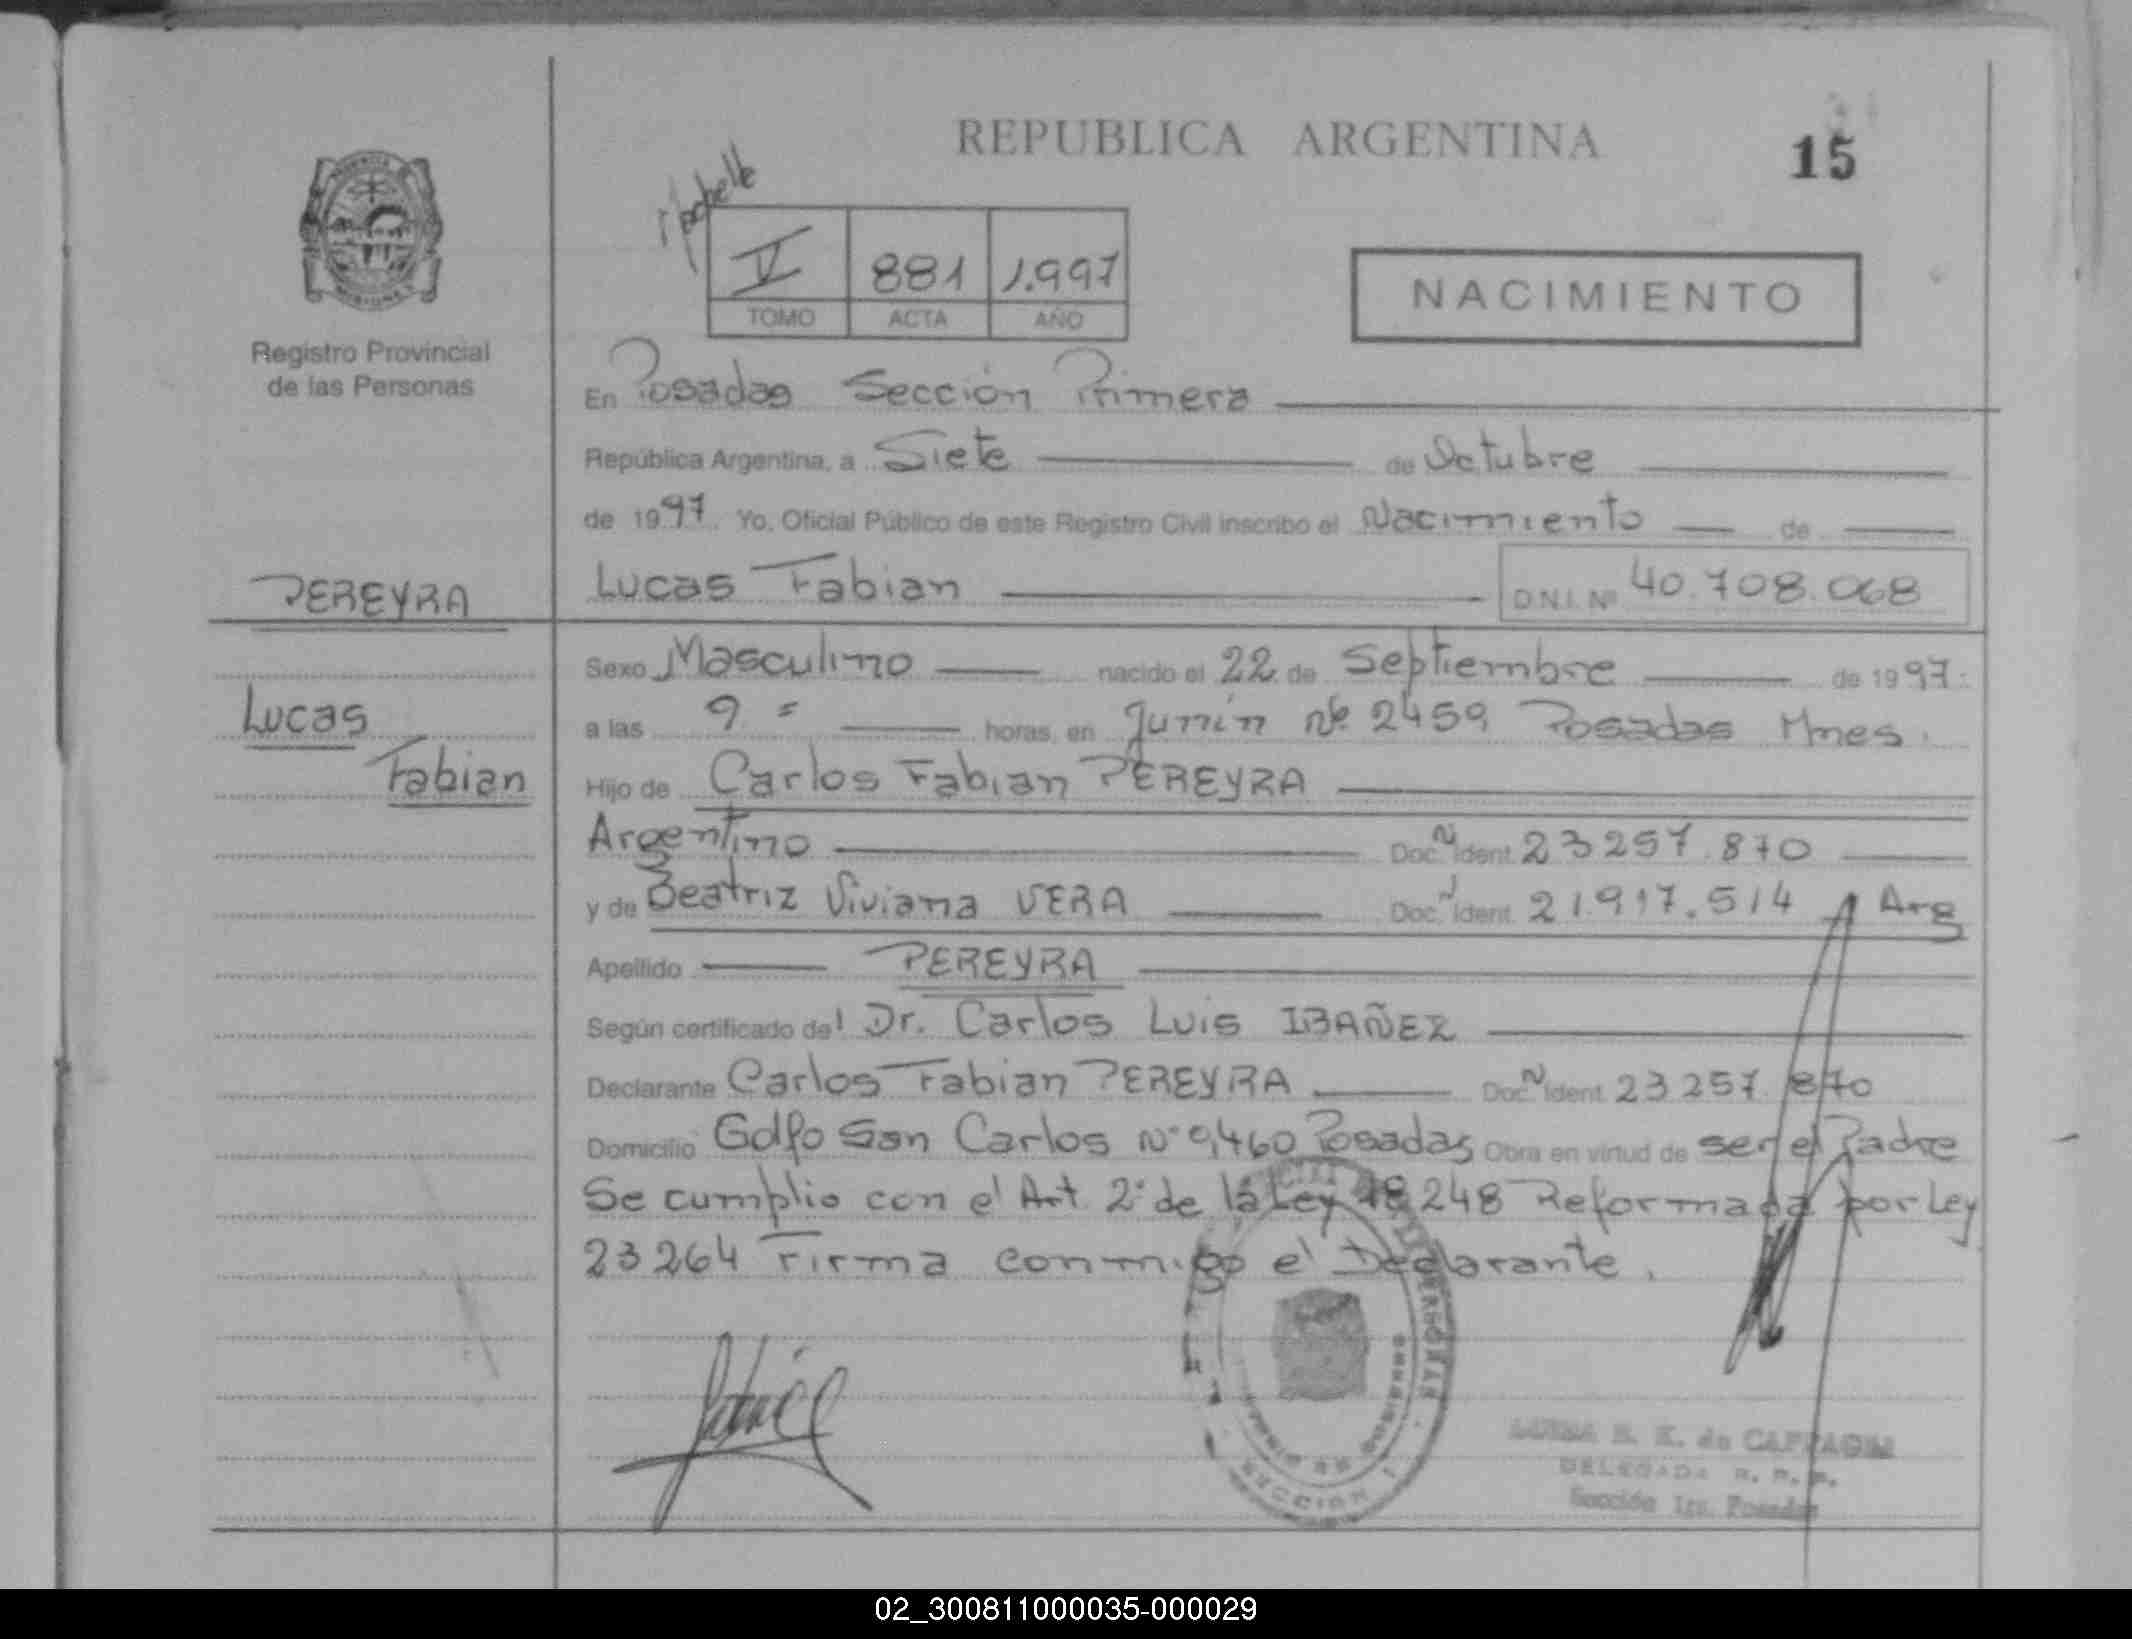 REPUBLICA ARGENTINA
15
V 881 1.997
TOMO ACTA AÑO
NACIMIENTO
Registro Provincial
de las Personas
En Posadas Sección Primera
República Argentina, a Siete de Octubre
de 1997. Yo, Oficial Público de este Registro Civil inscribo el Nacimiento de
PEREYRA
Lucas Fabian D.N.I. Nº 40.708.068
Sexo Masculino nacido el 22 de Septiembre de 1997.
Lucas
a las 9 = horas, en Junín Nº 2459 Posadas Mnes.
Fabian
Hijo de Carlos Fabian PEREYRA
Argentino Doc. N Ident. 23 257.870
y de Beatriz Viviana VERA Doc. N Ident. 21.917.514 Arg
Apellido PEREYRA
Según certificado del Dr. Carlos Luis IBAÑEZ
Declarante Carlos Fabian PEREYRA Doc. N Ident. 23 257.870
Domicilio Golfo San Carlos Nº 9,460 Posadas Obra en virtud de ser el Padre
Se cumplio con el Art. 2º de la Ley 18 248 Reformada por Ley
23 264 Firma conmigo el Declarante.
SECCION 1
DELEGADA R. P. P.
Sección 1ra. Posadas
02_300811000035-000029